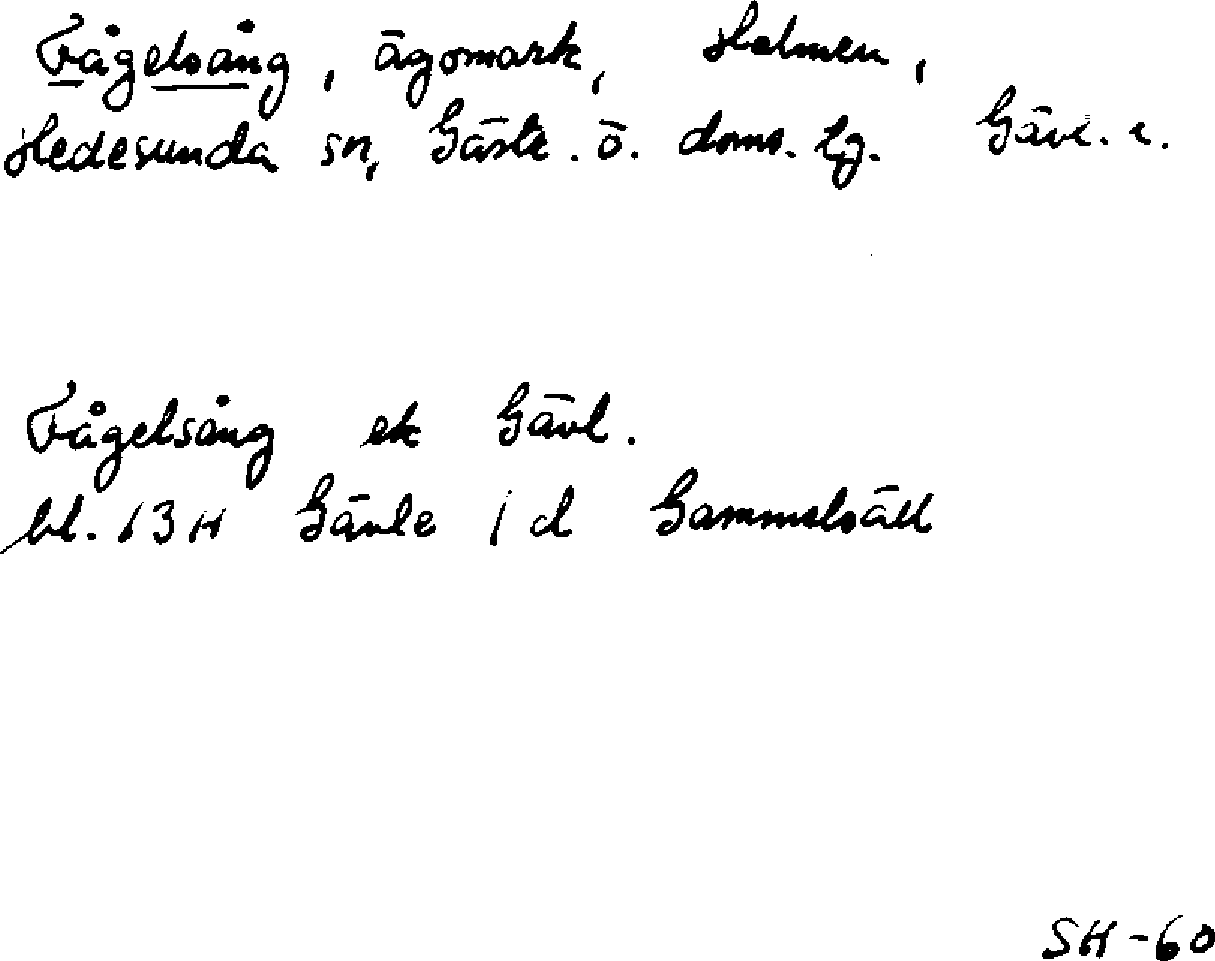 Fågelsång, ägomark, Holmen,
Hedesunda sn, Gästr. ö. doms. lg. Gävl. l.
Fågelsång ek Gävl.
bl. 13H Gävle 1d Gammelsäll
SH-60